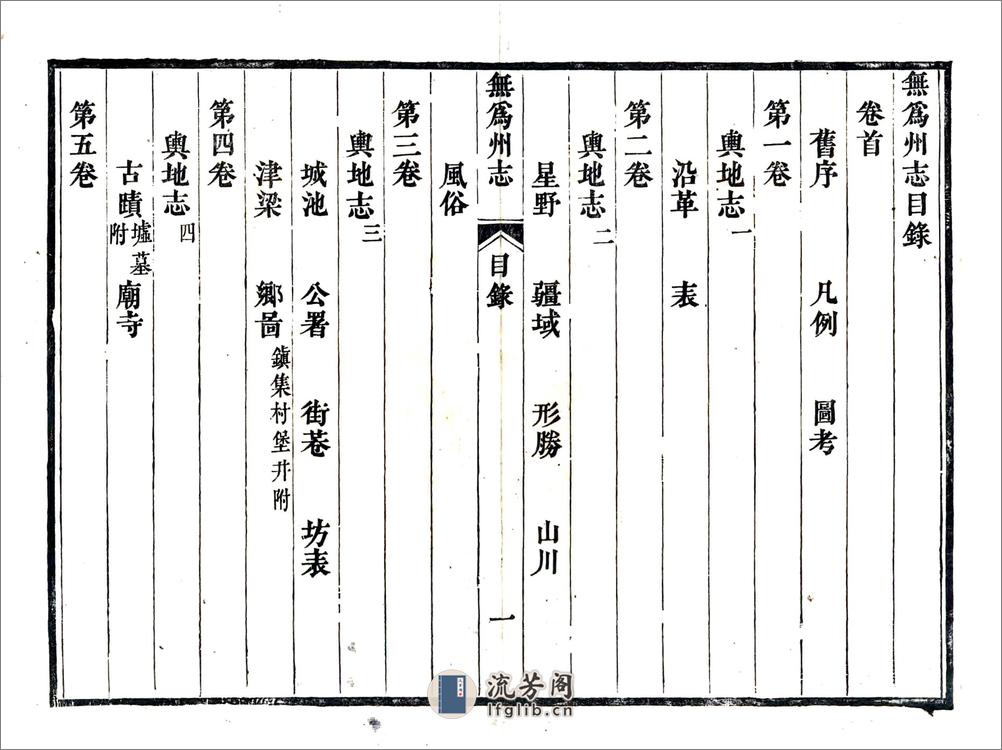 無爲州志目錄
卷首
舊序 凡例 圖考
第一卷
輿地志一
沿革 表
第二卷
輿地志二
星野 疆域 形勝 山川
無爲州志 目錄 一
風俗
第三卷
輿地志三
城池 公署 街巷 坊表
津梁 鄉啚 鎮集村堡井附
第四卷
輿地志四
古蹟 墟墓附 廟寺
第五卷
流芳阁
lfglib.cn